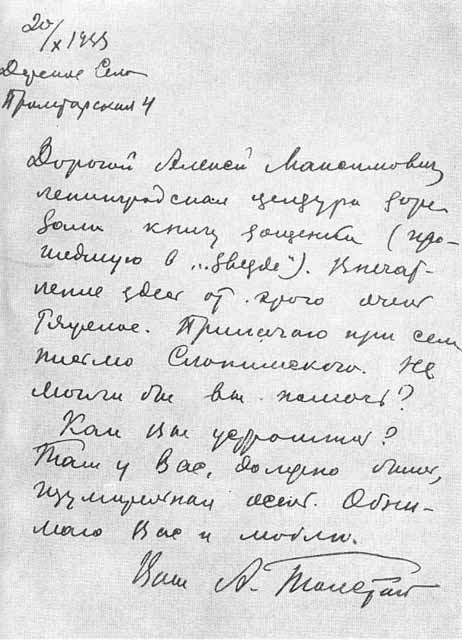 20/X 1933
Детское Село
Пролетарская 4
Дорогой Алексей Максимович,
ленинградская цензура заре-
зала книгу Зощенки (про-
шедшую в „Звезде"). Впечат-
ление здесь от этого очень
тяжелое. Прилагаю при сем
письмо Слонимского. Не
могли бы вы помочь?
Как Вы
Там у Вас, должно быть,
изумительная осень. Обни-
маю Вас и люблю.
Ваш А. Толстой